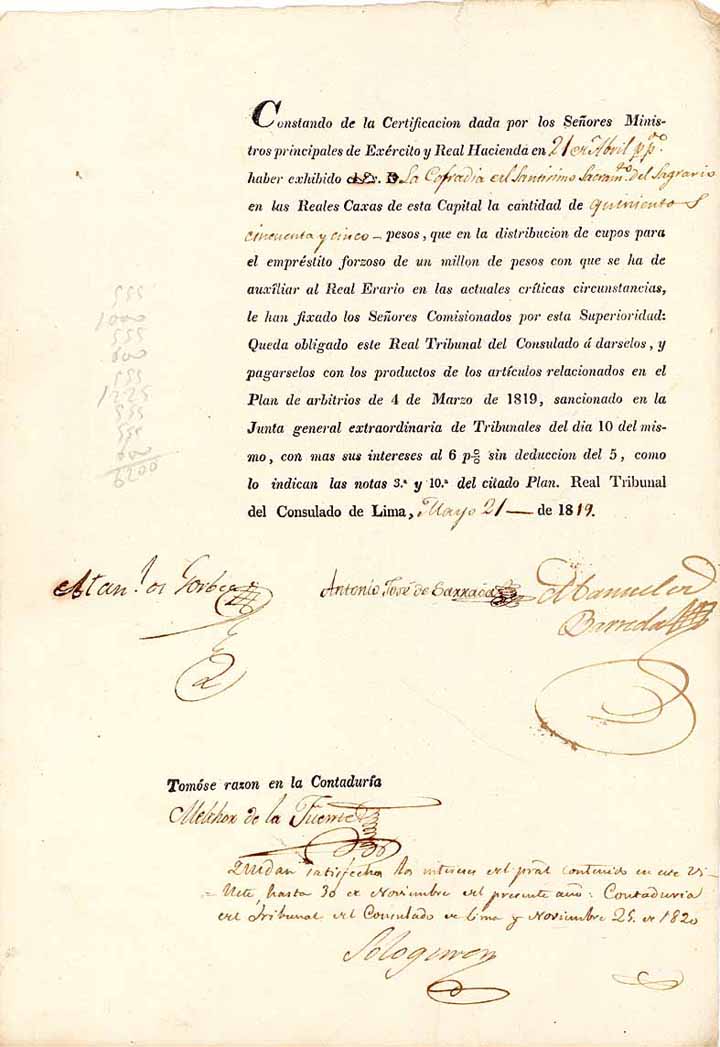 Constando de la Certificacion dada por los Señores Minis-
tros principales de Exército y Real Hacienda en 21 de Abril pp.º
haber exhibido La Cofradia del Santisimo Sacram.to del Sagrario
en las Reales Caxas de esta Capital la cantidad de quinientos
cincuenta y cinco - pesos, que en la distribucion de cupos para
el empréstito forzoso de un millon de pesos con que se ha de
auxîliar al Real Erario en las actuales críticas circunstancias,
le han fixado los Señores Comisionados por esta Superioridad:
Queda obligado este Real Tribunal del Consulado á darselos, y
pagarselos con los productos de los artículos relacionados en el
Plan de arbitrios de 4 de Marzo de 1819, sancionado en la
Junta general extraordinaria de Tribunales del dia 10 del mis-
mo, con mas sus intereses al 6 p% sin deduccion del 5, como
lo indican las notas 3.ª y 10.ª del citado Plan. Real Tribunal
del Consulado de Lima, Mayo 21 — de 1819.
555
1000
555
600
555
1225
555
555
600
6200
Gorbea
Antonio José de Sarraoa
Manuel de
Barreda
Tomóse razon en la Contaduría
Melchor de la Fuente
Quedan satisfechos los intereses del pral contenido en este Vi-
llete, hasta 30 de Noviembre del presente año: Contaduria
del Tribunal del Consulado de Lima y Noviembre 25. de 1820